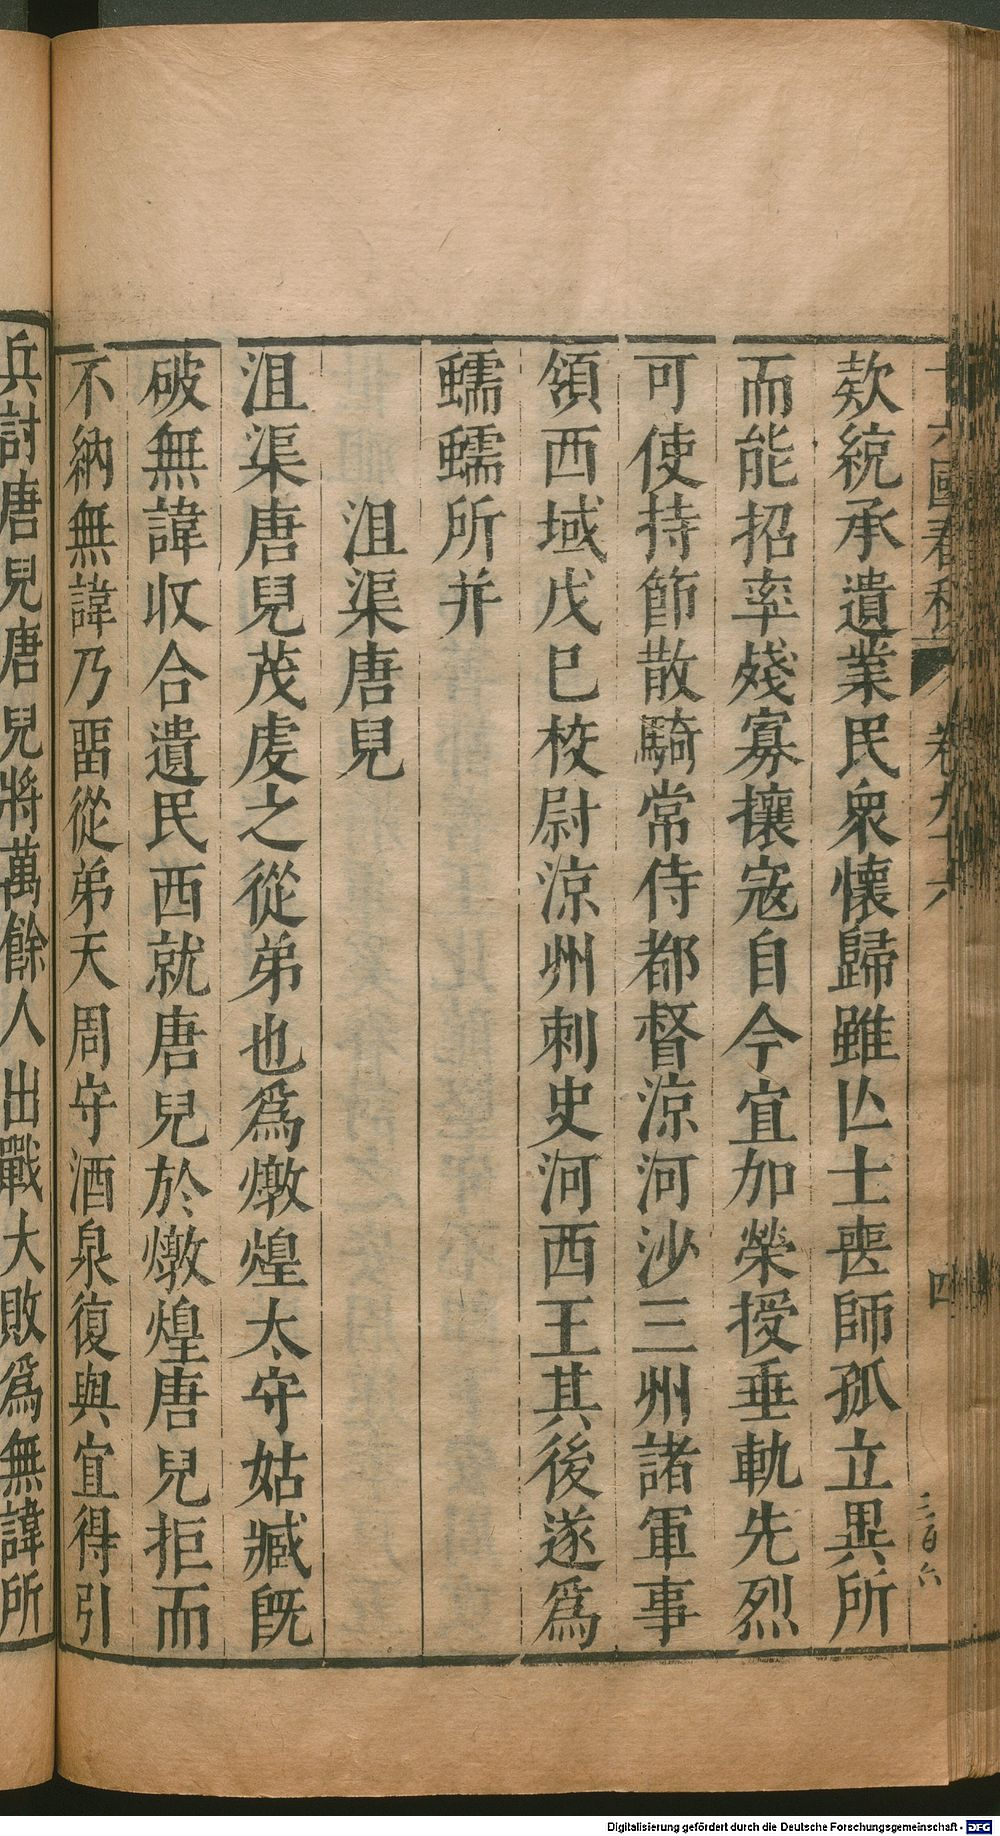 十六國春秋 卷九十六 四 三百六
欵統承遺業民衆懷歸雖亾士喪師孤立異所
而能招率殘寡攘寇自今宜加榮授垂軌先烈
可使持節散騎常侍都督涼河沙三州諸軍事
領西域戊巳校尉涼州刺史河西王其後遂爲
蠕蠕所并
沮渠唐兒
沮渠唐兒茂虔之從弟也爲燉煌太守姑臧旣
破無諱收合遺民西就唐兒於燉煌唐兒拒而
不納無諱乃畱從弟天周守酒泉復與宜得引
兵討唐兒唐兒將萬餘人出戰大敗爲無諱所
Digitalisierung gefördert durch die Deutsche Forschungsgemeinschaft - DFG